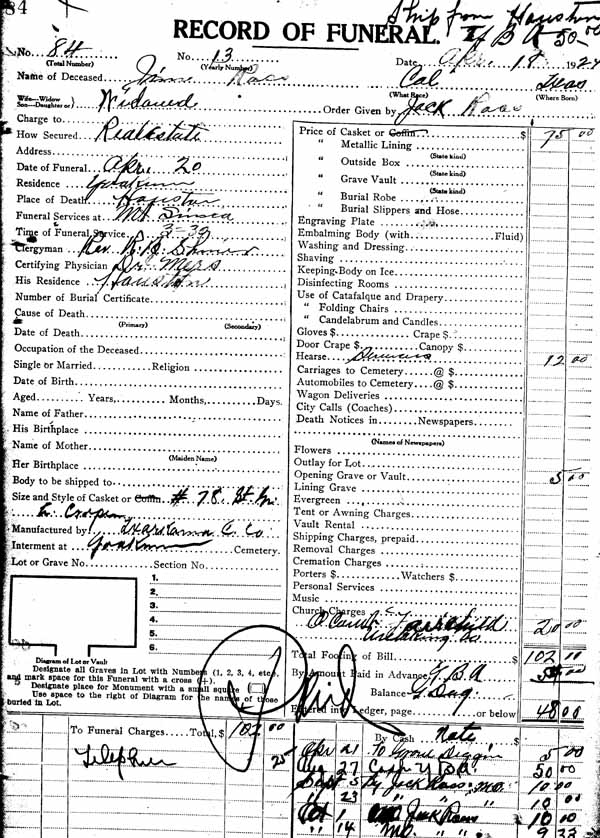 84
Ship from Houston
RECORD OF FUNERAL.
Y B A 50.00
No. 84 No. 13 Date Apr. 18 192
(Total Number) (Yearly Number)
Name of Deceased Ross Col Texas
(What Race) (Where Born)
Wife—Widow
Son—Daughter or) Widowed Order Given by Jack Ross
Charge to
How Secured Real estate
Address
Date of Funeral Apr. 20
Residence Yoakum
Place of Death Houston
Funeral Services at Mt
Time of Funeral Service
Clergyman Rev.
Certifying Physician Dr.
His Residence Houston
Number of Burial Certificate
Cause of Death
(Primary) (Secondary)
Date of Death
Occupation of the Deceased
Single or Married Religion
Date of Birth
Aged Years, Months, Days.
Name of Father
His Birthplace
Name of Mother
(Maiden Name)
Her Birthplace
Body to be shipped to
Size and Style of Casket or Coffin # 78
Manufactured by Texarkana C. Co
Interment at Yoakum Cemetery.
Lot or Grave No. Section No.
1.
2.
3.
4.
5.
6.
Diagram of Lot or Vault
Designate all Graves in Lot with Numbers (1, 2, 3, 4, etc.)
and mark space for this Funeral with a cross (+).
Designate place for Monument with a small square
Use space to the right of Diagram for the names of those
buried in Lot.
Price of Casket or Coffin $ 75 00
" Metallic Lining
(State kind)
" Outside Box
(State kind)
" Grave Vault
(State kind)
" Burial Robe
(State kind)
" Burial Slippers and Hose
Engraving Plate
Embalming Body (with Fluid)
Washing and Dressing
Shaving
Keeping Body on Ice
Disinfecting Rooms
Use of Catafalque and Drapery
" Folding Chairs
" Candelabrum and Candles
Gloves $ Crape $
Door Crape $ Canopy $
Hearse 12 00
Carriages to Cemetery @ $
Automobiles to Cemetery @ $
Wagon Deliveries
City Calls (Coaches)
Death Notices in Newspapers
(Names of Newspapers)
Flowers
Outlay for Lot
Opening Grave or Vault 5 00
Lining Grave
Evergreen
Tent or Awning Charges
Vault Rental
Shipping Charges, prepaid
Removal Charges
Cremation Charges
Porters $ Watchers $
Personal Services
Music
Church Charges
20 00
Total Footing of Bill $ 102
By Amount Paid in Advance Y.B.A
Balance
Entered into Ledger, page or below 48 00
Paid
To Funeral Charges Total, $ 102 00
25
By Cash Note $
Apr 21 To 5 00
Aug 27 Cash Y B A 50 00
Sept 5 By Jack Ross M.O. 10 00
" 23 " " " 10 00
Oct 1 Jack Ross 10 00
" 14 M.O. 9